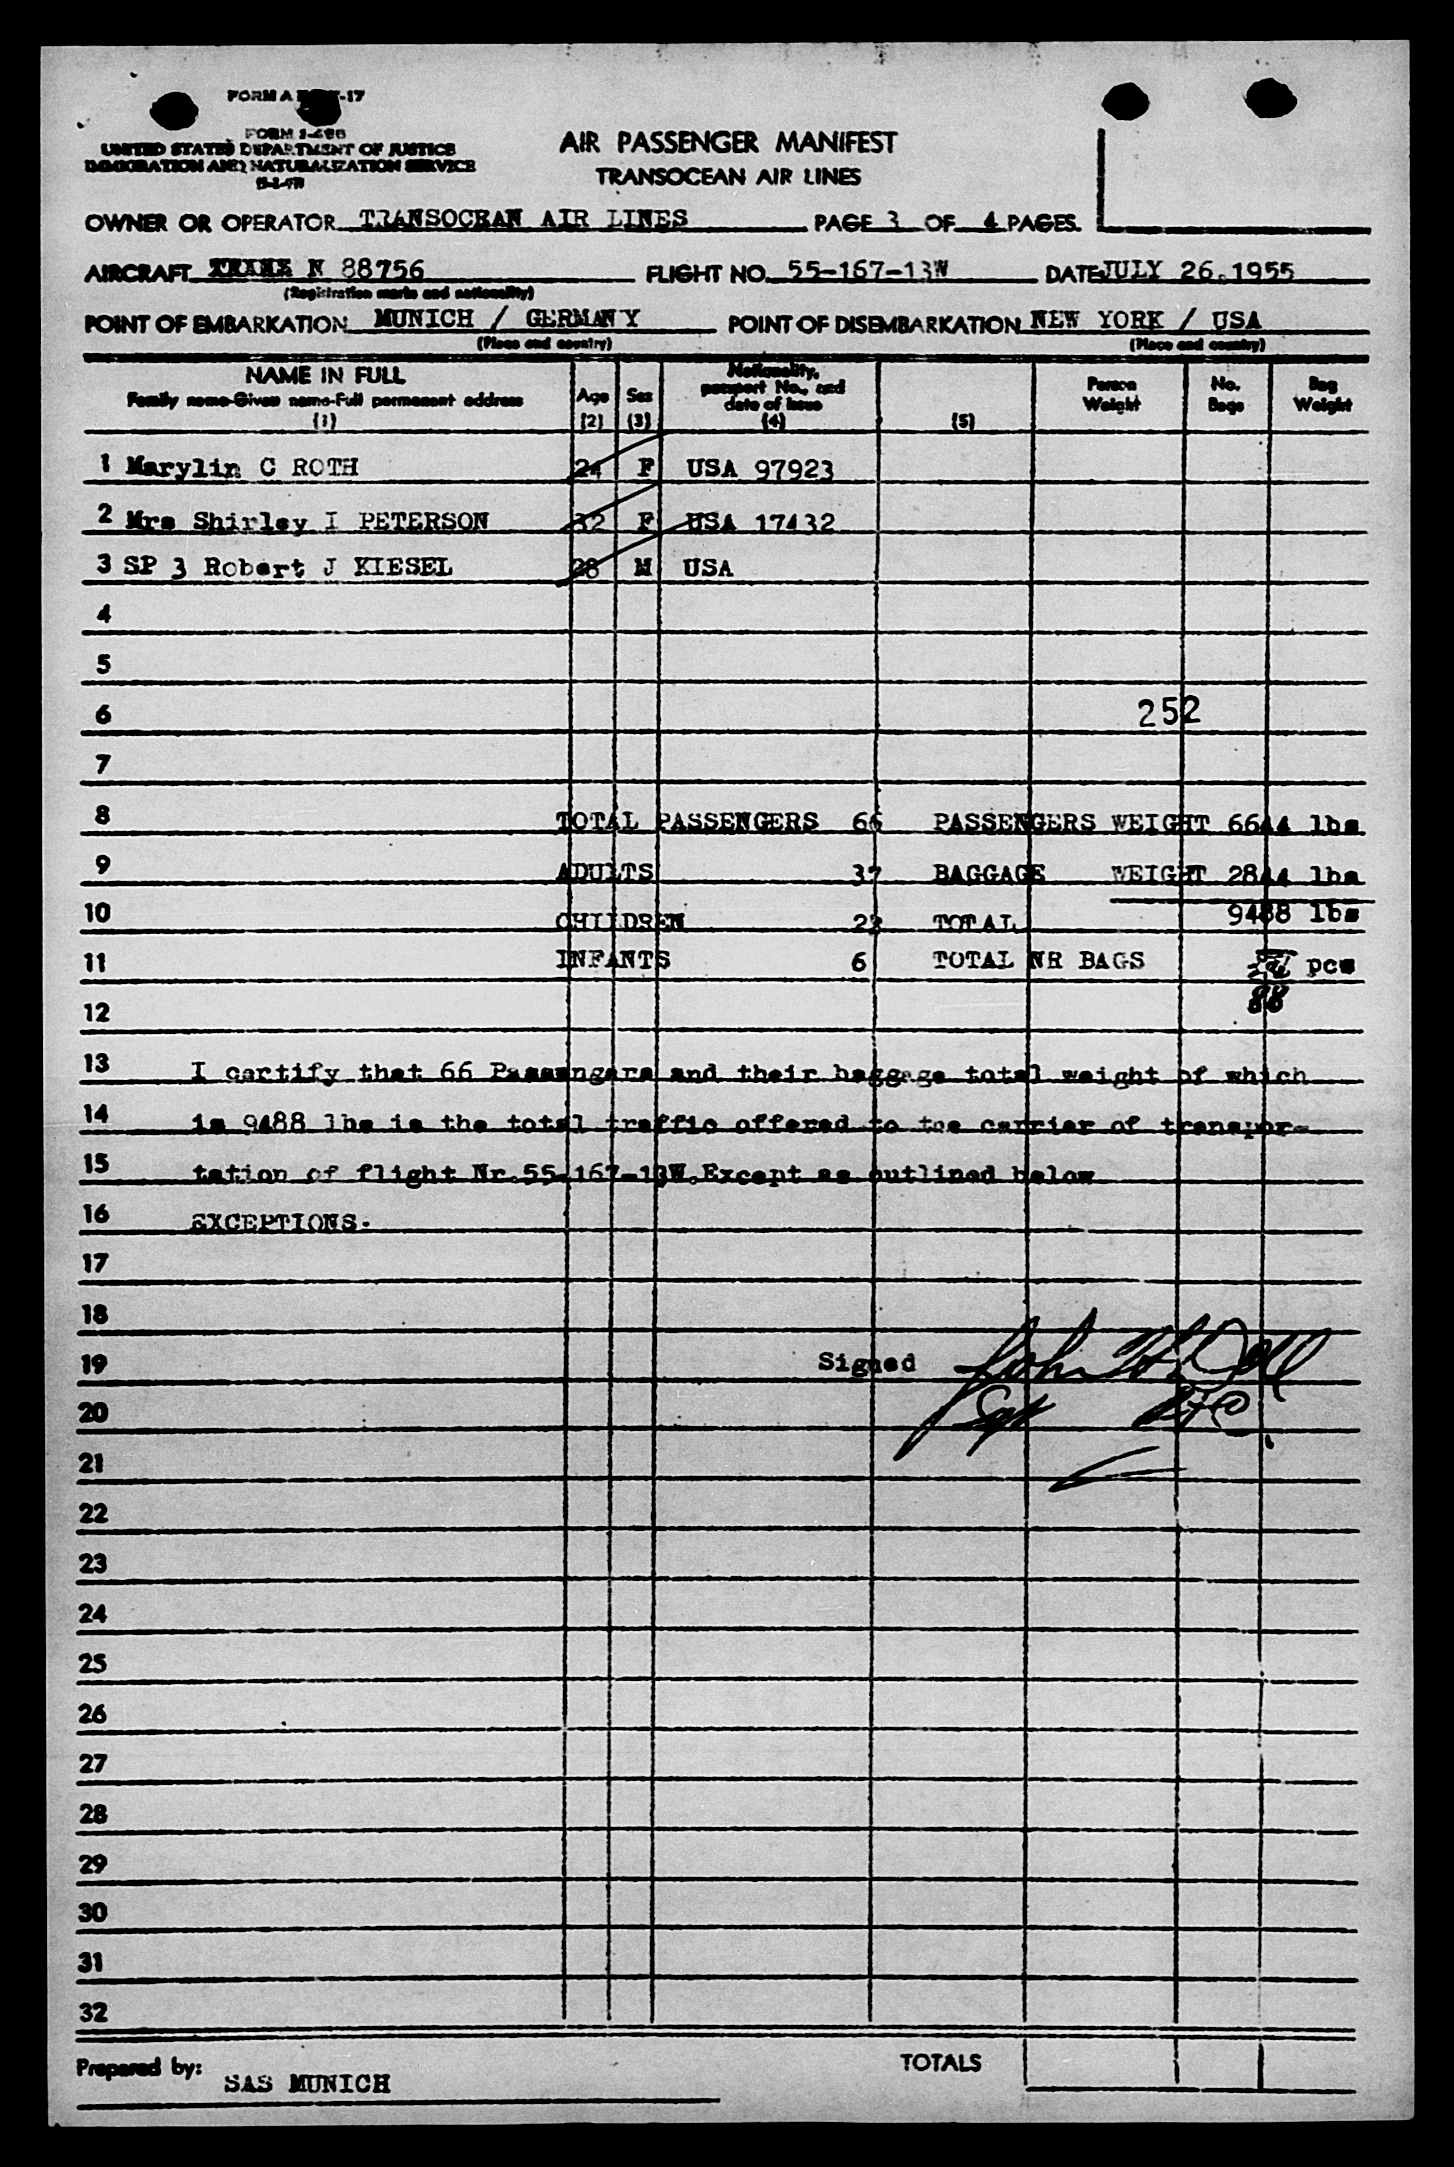 FORM A
-17
FORM I-466
UNITED STATES DEPARTMENT OF JUSTICE
IMMIGRATION AND NATURALIZATION SERVICE
AIR PASSENGER MANIFEST
TRANSOCEAN AIR LINES
OWNER OR OPERATOR TRANSOCEAN AIR LINES PAGE 3 OF 4 PAGES
AIRCRAFT N 88756 FLIGHT NO. 55-167-13W DATE JULY 26.1955
(Registration marks and nationality)
POINT OF EMBARKATION MUNICH / GERMANY POINT OF DISEMBARKATION NEW YORK / USA
(Place and country) (Place and country)
NAME IN FULL Age Sex Nationality, Person No. Bag
Family name-Given name-Full permanent address passport No., and Weight Bags Weight
date of issue
(1) (2) (3) (4) (5)
1 Marylin C ROTH 24 F USA 97923
2 Mrs Shirley I PETERSON 32 F USA 17432
3 SP 3 Robert J KIESEL 28 M USA
4
5
6 252
7
8 TOTAL PASSENGERS 66 PASSENGERS WEIGHT 6644 lbs
9 ADULTS 37 BAGGAGE WEIGHT 2844 lbs
10 CHILDREN 23 TOTAL 9488 lbs
11 INFANTS 6 TOTAL NR BAGS pcs
88
12
13 I certify that 66 Passengers and their baggage total weight of which
14 is 9488 lbs is the total traffic offered to the carrier of transpor-
15 tation of flight Nr.55-167-13W.Except as outlined below
16 EXCEPTIONS.
17
18
19 Signed John
20 Sgt
21
22
23
24
25
26
27
28
29
30
31
32
Prepared by: SAS MUNICH TOTALS